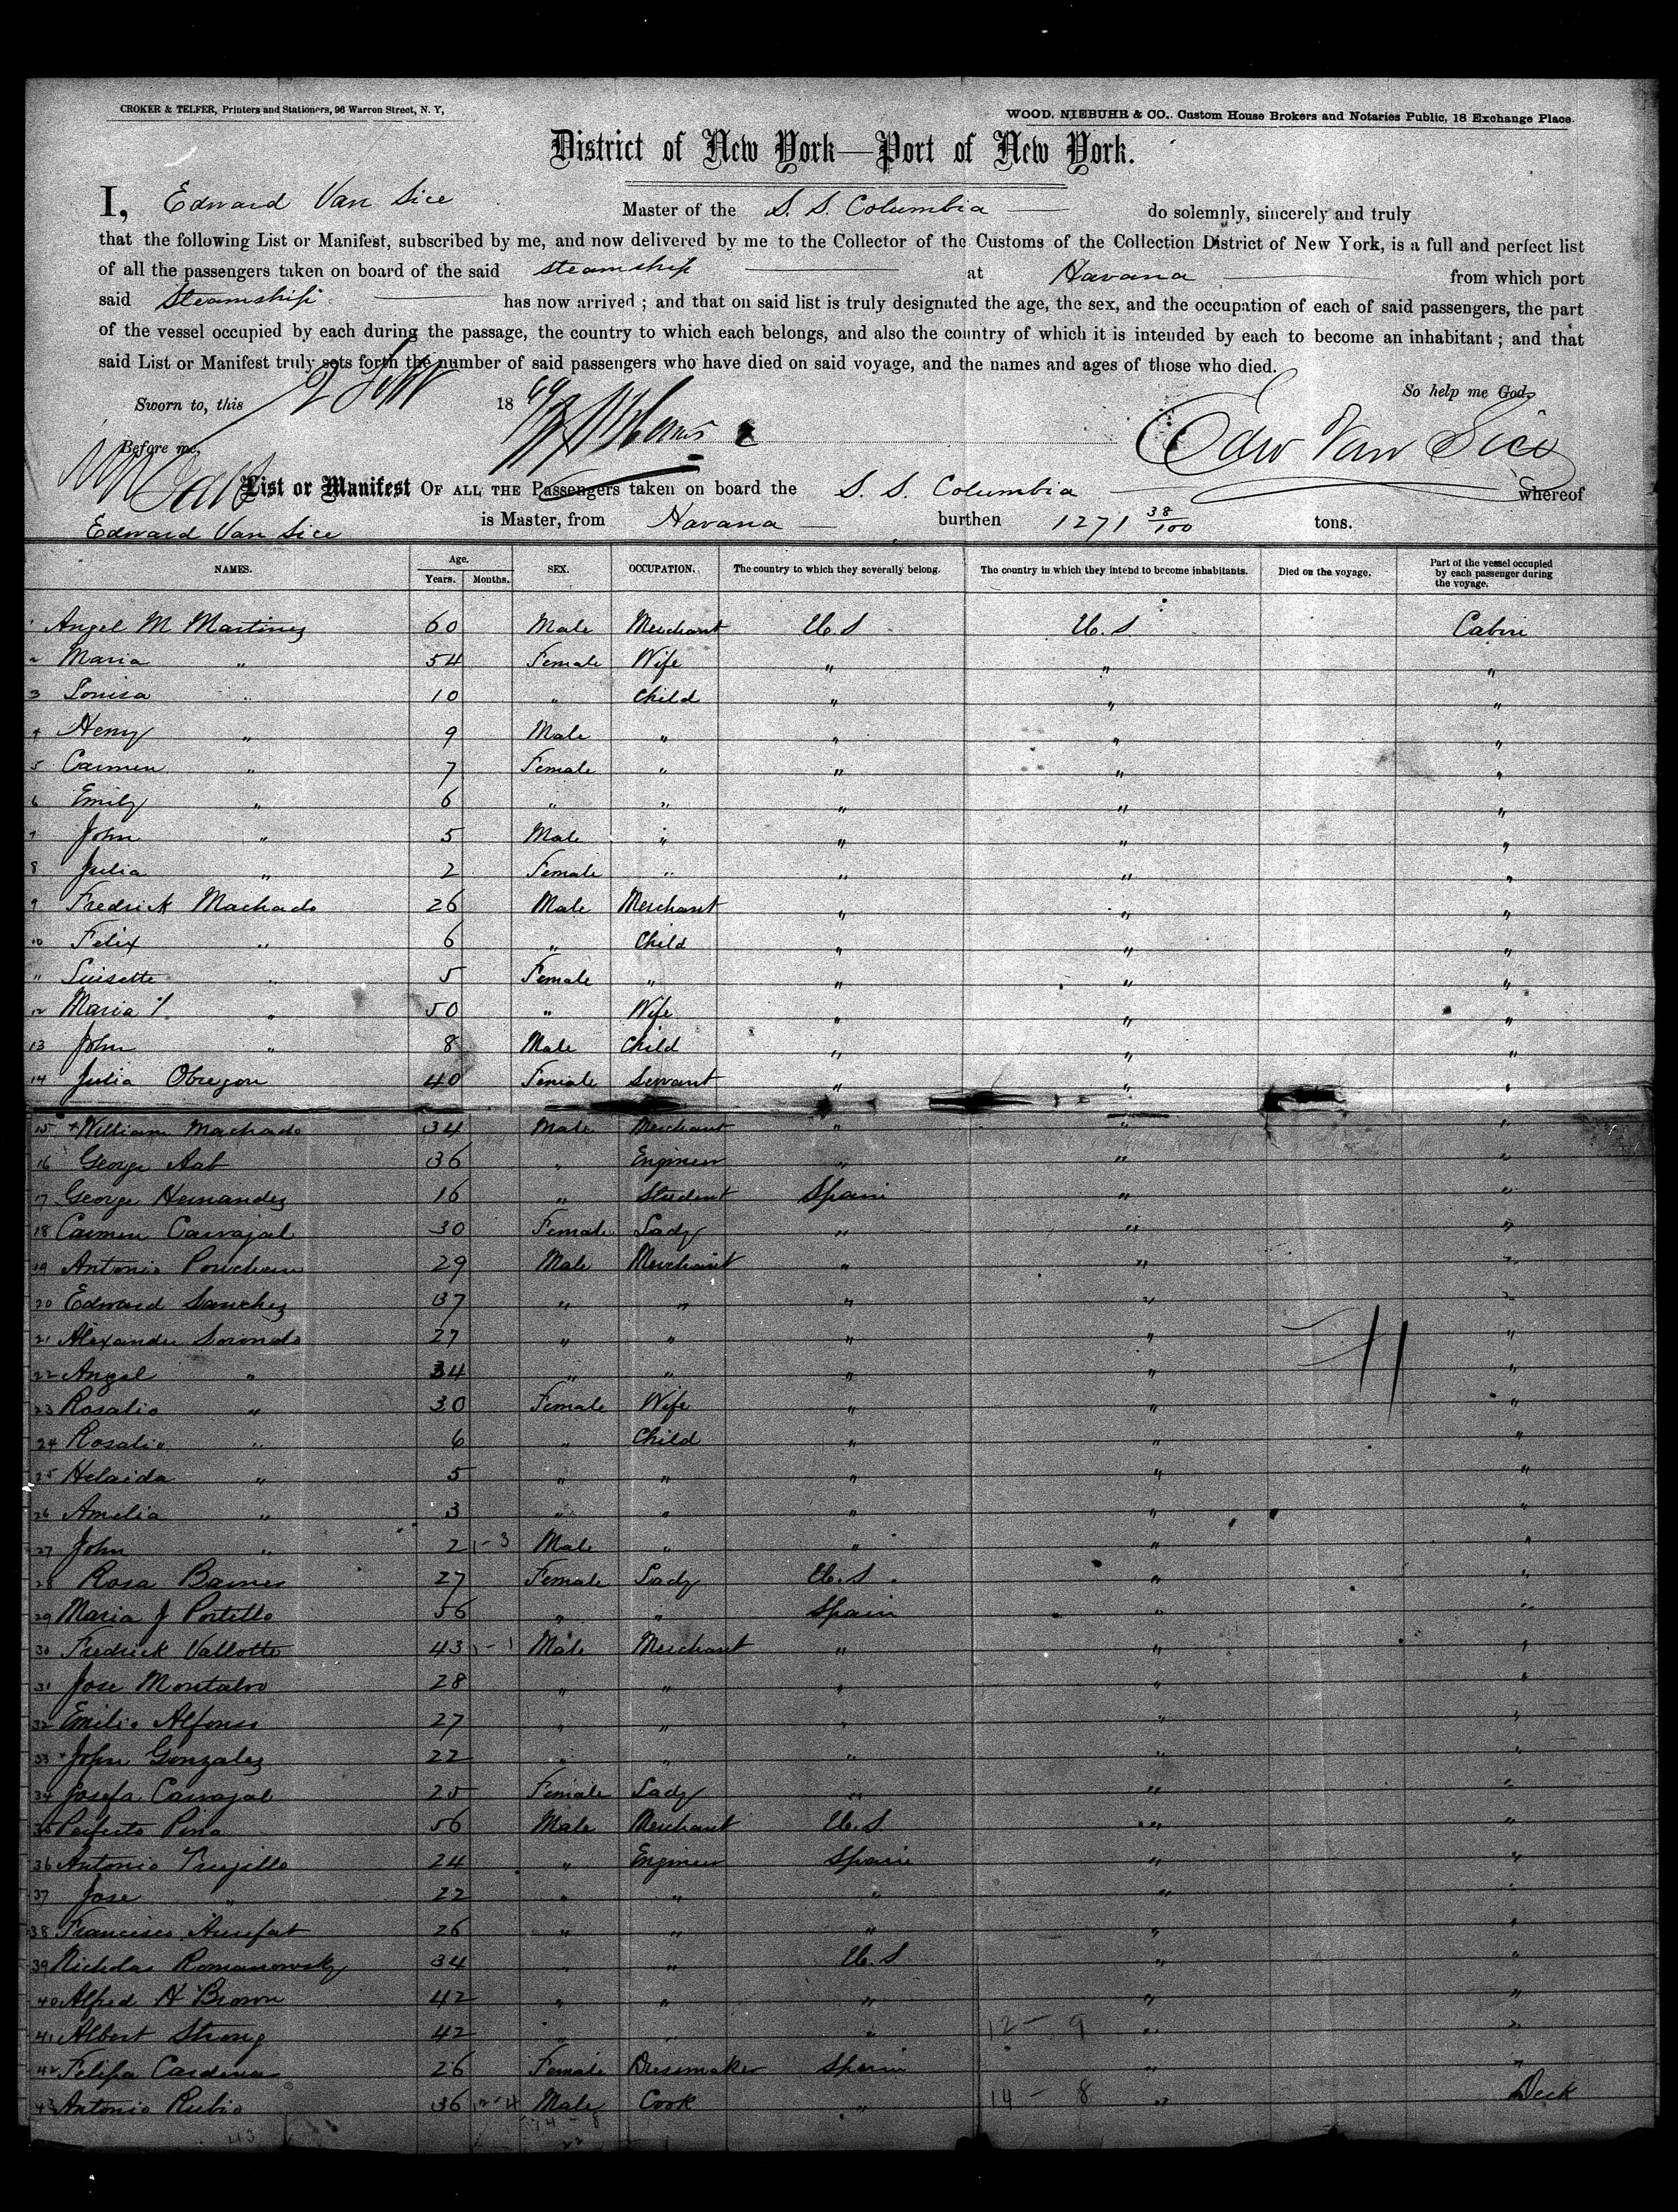 CROKER & TELFER, Printers and Stationers, 96 Warren Street, N. Y,
WOOD, NIEBUHR & CO., Custom House Brokers and Notaries Public, 18 Exchange Place.
District of New York—Port of New York.
I, Edward Van Sice Master of the S. S. Columbia do solemnly, sincerely and truly
that the following List or Manifest, subscribed by me, and now delivered by me to the Collector of the Customs of the Collection District of New York, is a full and perfect list
of all the passengers taken on board of the said steamship at Havana from which port
said Steamship has now arrived ; and that on said list is truly designated the age, the sex, and the occupation of each of said passengers, the part
of the vessel occupied by each during the passage, the country to which each belongs, and also the country of which it is intended by each to become an inhabitant ; and that
said List or Manifest truly sets forth the number of said passengers who have died on said voyage, and the names and ages of those who died.
So help me God.
Sworn to, this 2 Sept 1869
Before me, Edw Van Sice
List or Manifest OF ALL THE Passengers taken on board the S. S. Columbia whereof
Edward Van Sice is Master, from Havana burthen 1271 38/100 tons.
NAMES. Age. Years. Months. SEX. OCCUPATION. The country to which they severally belong. The country in which they intend to become inhabitants. Died on the voyage. Part of the vessel occupied by each passenger during the voyage.
1 Angel M Martinez 60 Male Merchant U. S U. S Cabin
2 Maria " 54 Female Wife " " "
3 Louisa " 10 " Child " " "
4 Henry " 9 Male " " " "
5 Carmen " 7 Female " " " "
6 Emily " 6 " " " " "
7 John " 5 Male " " " "
8 Julia " 2 Female " " " "
9 Fredrick Machado 26 Male Merchant " " "
10 Felix " 6 " Child " " "
11 Luisette " 5 Female " " " "
12 Maria " 50 " Wife " " "
13 John " 8 Male Child " " "
14 Julia Obregon 40 Female Servant " " "
15 + William Machado 34 Male Merchant " " "
16 George Aab 36 " Engineer " " "
17 George Hernandez 16 " Student Spain " "
18 Carmen Carvajal 30 Female Lady " " "
19 Antonio 29 Male Merchant " " "
20 Edward Sanchez 37 " " " " "
21 Alexander Sorondo 27 " " " " "
22 Angel " 34 " " " " "
23 Rosalio " 30 Female Wife " " "
24 Rosalio " 6 " Child " " "
25 Helaida " 5 " " " " "
26 Amelia " 3 " " " " "
27 John " 2 1-3 Male " " " "
28 Rosa Barnes 27 Female Lady U. S. " "
29 Maria J Portillo 56 " " Spain " "
30 Fredrick Vallotte 43 Male Merchant " " "
31 Jose Montalvo 28 " " " " "
32 Emilio Alfonso 27 " " " " "
33 + John Gonzalez 22 " " " " "
34 Josefa Carvajal 25 Female Lady " " "
35 Perfecto Pina 56 Male Merchant U. S " "
36 Antonio Trujillo 24 " Engineer Spain " "
37 Jose " 22 " " " " "
38 Francisco 26 " " " " "
39 Nicholas Romanowsky 34 " " U. S " "
40 Alfred H Brown 42 " " " " "
41 Albert Strong 42 " " " 12 - 9 " "
42 Felipa Cardenas 26 Female Dressmaker Spain " "
43 Antonio Rubio 36 Male Cook " 14 - 8 " Deck
43